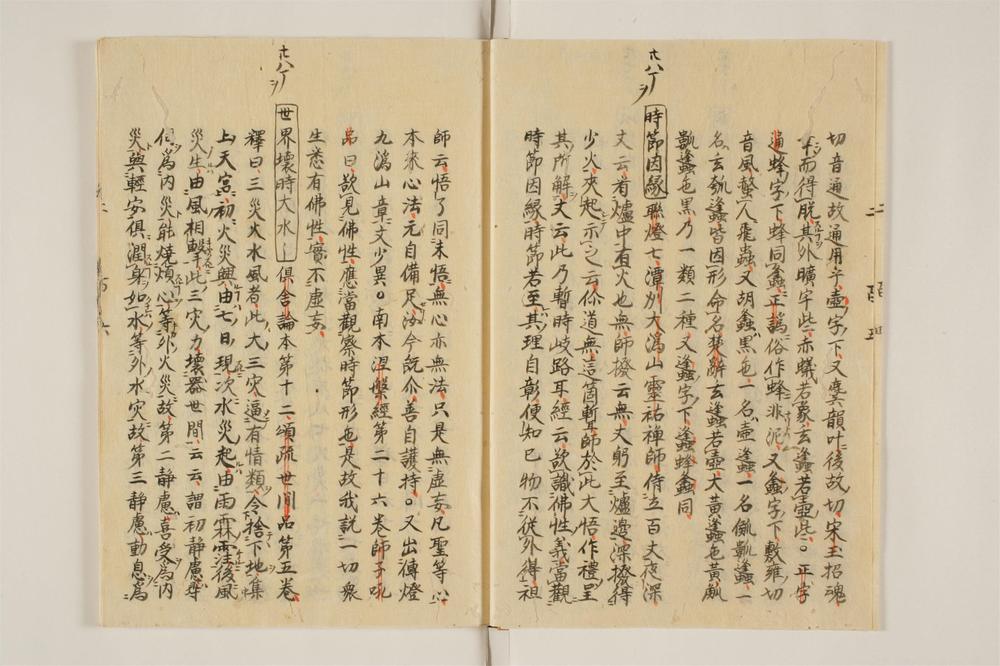 切音通故通用乎壺字下又䖝韻叶後故切宋玉招魂
而得脫其外曠宇些赤蟻若象玄蠭若壺些○正字
通蜂字下蜂同螽正譌俗作蜂非泥又螽字下敷雍切
音風螫人飛蟲又胡蠭黒色一名壺蠭一名
名玄瓠蠭皆因形命名楚辭玄蠭若壺大黃蠭色黃
瓠蠭色黒乃一類二種又蠭字下蠭蜂螽同
六八丁
時節因縁聯燈七潭州大溈山靈祐禪師侍立百丈夜深
丈云看爐中有火也無師撥云無丈躬至爐邊深撥得
少火夾起示之云你道無這箇聻師於此大悟作禮呈
其所解丈云此乃暫時岐路耳經云欲識佛性義當觀
時節因縁時節若至其理自彰便知已物不從外得祖
師云悟了同未悟無心亦無法只是無虛妄凡聖等心
本來心法元自備足汝今旣尒善自護持○又出傳燈
九溈山章文少異○南本涅槃經第二十六卷師子吼
品曰欲見佛性應當觀察時節形色是故我説一切衆
生悉有佛性實不虛妄
六八丁
世界壞時大水〡倶舍論本第十二頌疏世間品第五卷
釋曰三災火水風者此大三灾逼有情類令捨下地集
上天宮初火災興由七日現次水災起由雨霖霔後風
災生由風相擊此三灾力壞器世間云云謂初静慮
伺爲内災能燒煩心等外火災故第二静慮喜受爲内
災與輕安倶潤身如水等外水灾故第三静慮動息爲